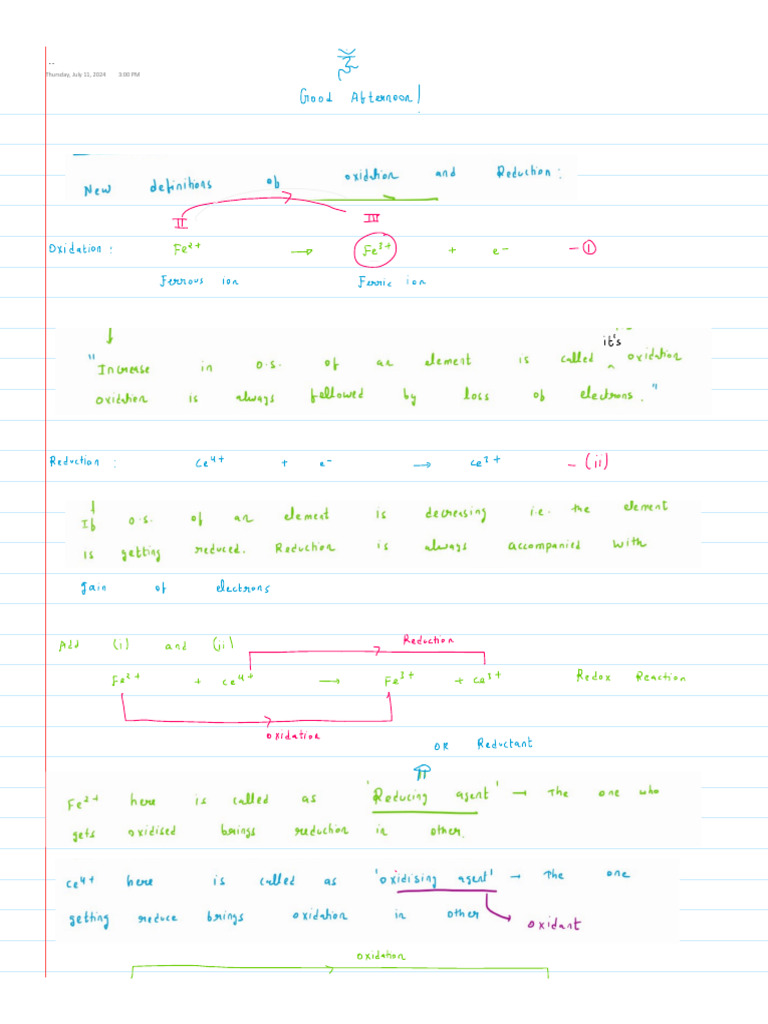 Thursday, July 11, 2024 3:00 PM
Good Afternoon!
New definitions of oxidation and Reduction:
II III
Oxidation: Fe²⁺ → Fe³⁺ + e⁻ - ①
Ferrous ion Ferric ion
it's
"Increase in o.s. of an element is called ^ oxidation
oxidation is always followed by loss of electrons."
Reduction: Ce⁴⁺ + e⁻ → Ce³⁺ - (ii)
If o.s. of an element is decreasing i.e. the element
is getting reduced. Reduction is always accompanied with
gain of electrons
Add (i) and (ii) Reduction
Fe²⁺ + Ce⁴⁺ → Fe³⁺ + Ce³⁺ Redox Reaction
oxidation
OR Reductant
Fe²⁺ here is called as 'Reducing agent' → The one who
gets oxidised brings reduction in other.
Ce⁴⁺ here is called as 'oxidising agent' → The one
getting reduce brings oxidation in other
oxidant
oxidation